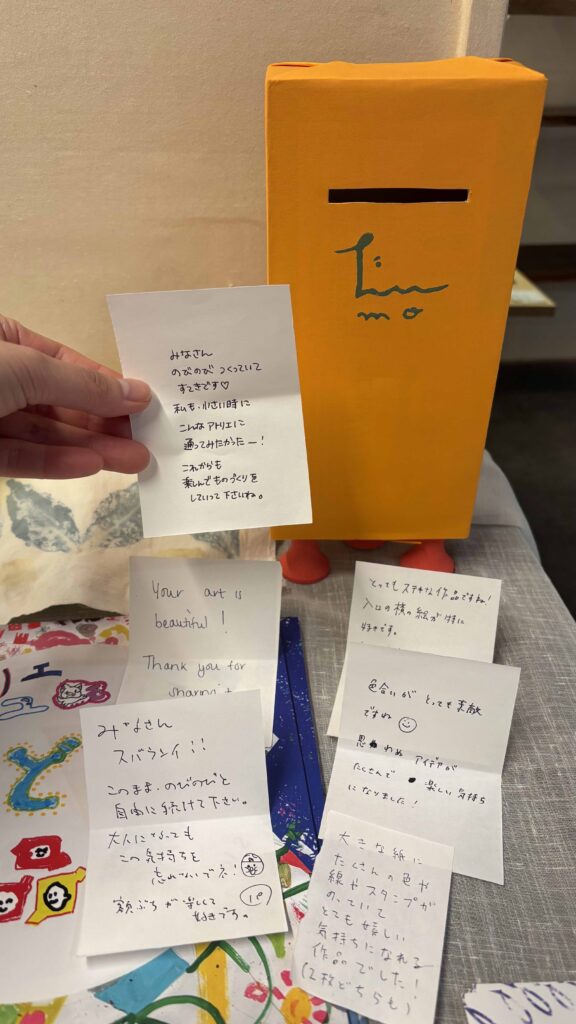 Limo
みなさん
のびのび つくっていて
すてきです♡
私も、小さい時に
こんなアトリエに
通ってみたかったー!
これからも
楽しんでものづくりを
していって下さいね。
Your art is
beautiful!
Thank you for
sharing it
とってもステキな作品ですね!
入口の横の絵が特に
好きです。
色合いが とっても素敵
ですね
思わぬ アイデアが
たくさんで 楽しい気持ち
になりました!
みなさん
スバラシイ!!
このまま、のびのびと
自由に続けて下さい。
大人になっても
この気持ちを
忘れないでネ!
額ぶちが楽しくて
好きです。
大きな紙に
たくさんの色や
線やスタンプが
のっていて
とても嬉しい
気持ちになれる
作品でした!
(2枚どちらも)
リエ
と